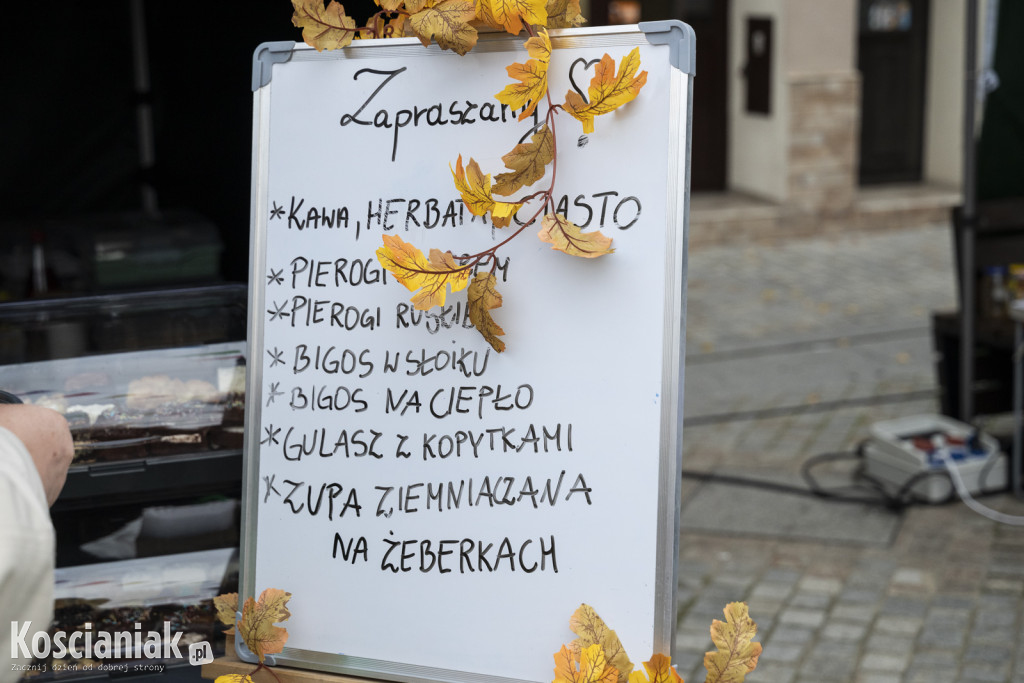 Zapraszamy
* KAWA, HERBATA, CIASTO
* PIEROGI
* PIEROGI RUSKIE
* BIGOS W SŁOIKU
* BIGOS NA CIEPŁO
* GULASZ Z KOPYTKAMI
* ZUPA ZIEMNIACZANA
NA ŻEBERKACH
Koscianiak.pl
Zacznij dzień od dobrej strony